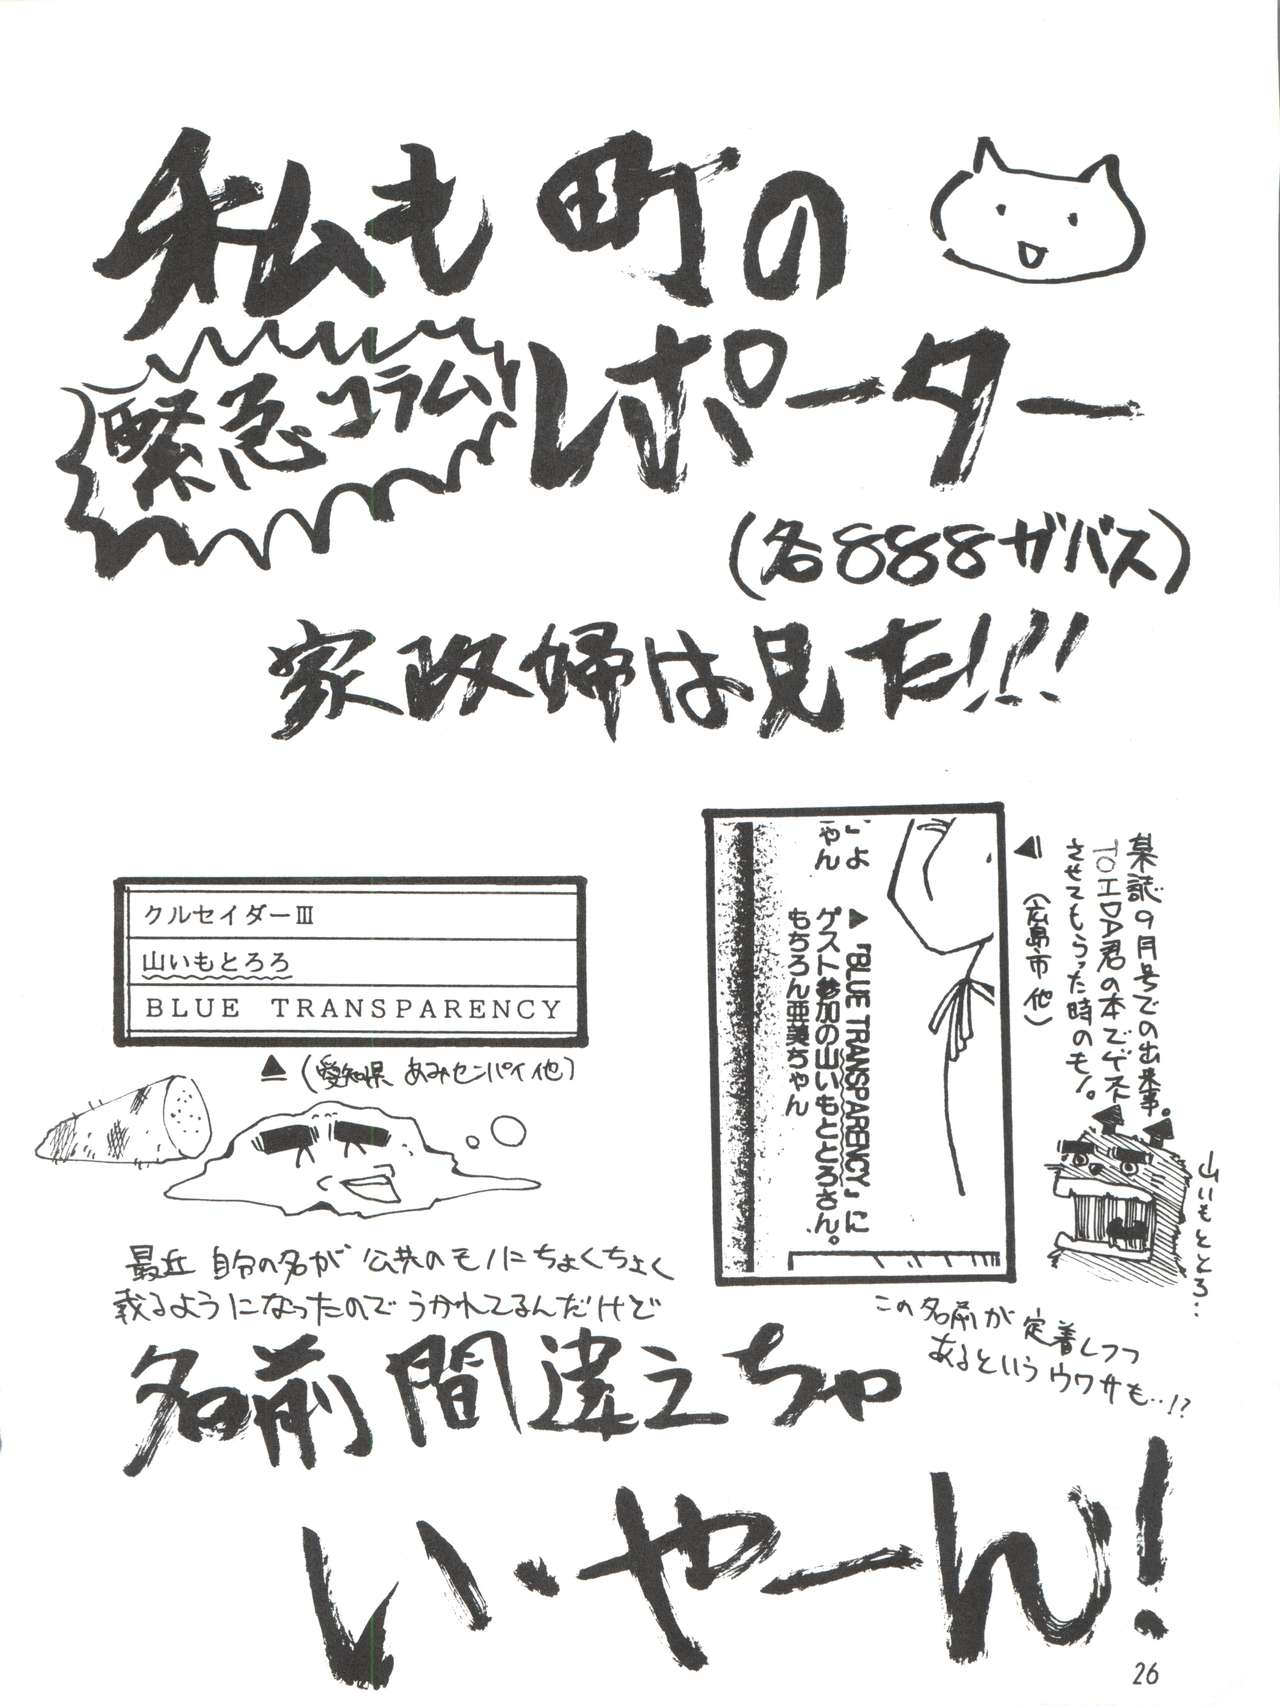 私も町の
レポーター
緊急コラム
(各888ガバス)
家政婦は見た!!!
クルセイダーⅢ
山いもとろろ
BLUE TRANSPARENCY
▲(愛知県 あみセンパイ他)
」よ
ゃん
▲『BLUE TRANSPARENCY』に
ゲスト参加の山いもととろさん。
もちろん亜美ちゃん
某誌9月号での出来事。
TOエDA君の本でゲスト
させてもらった時のモノ。
▲(広島市 他)
山いもととろ…
最近 自分の名が 公共のモノにちょくちょく
載るようになったので うかれてるんだけど
この名前が 定着しつつ
あるというウワサも…!?
名前間違えちゃ
い・やーん!
26